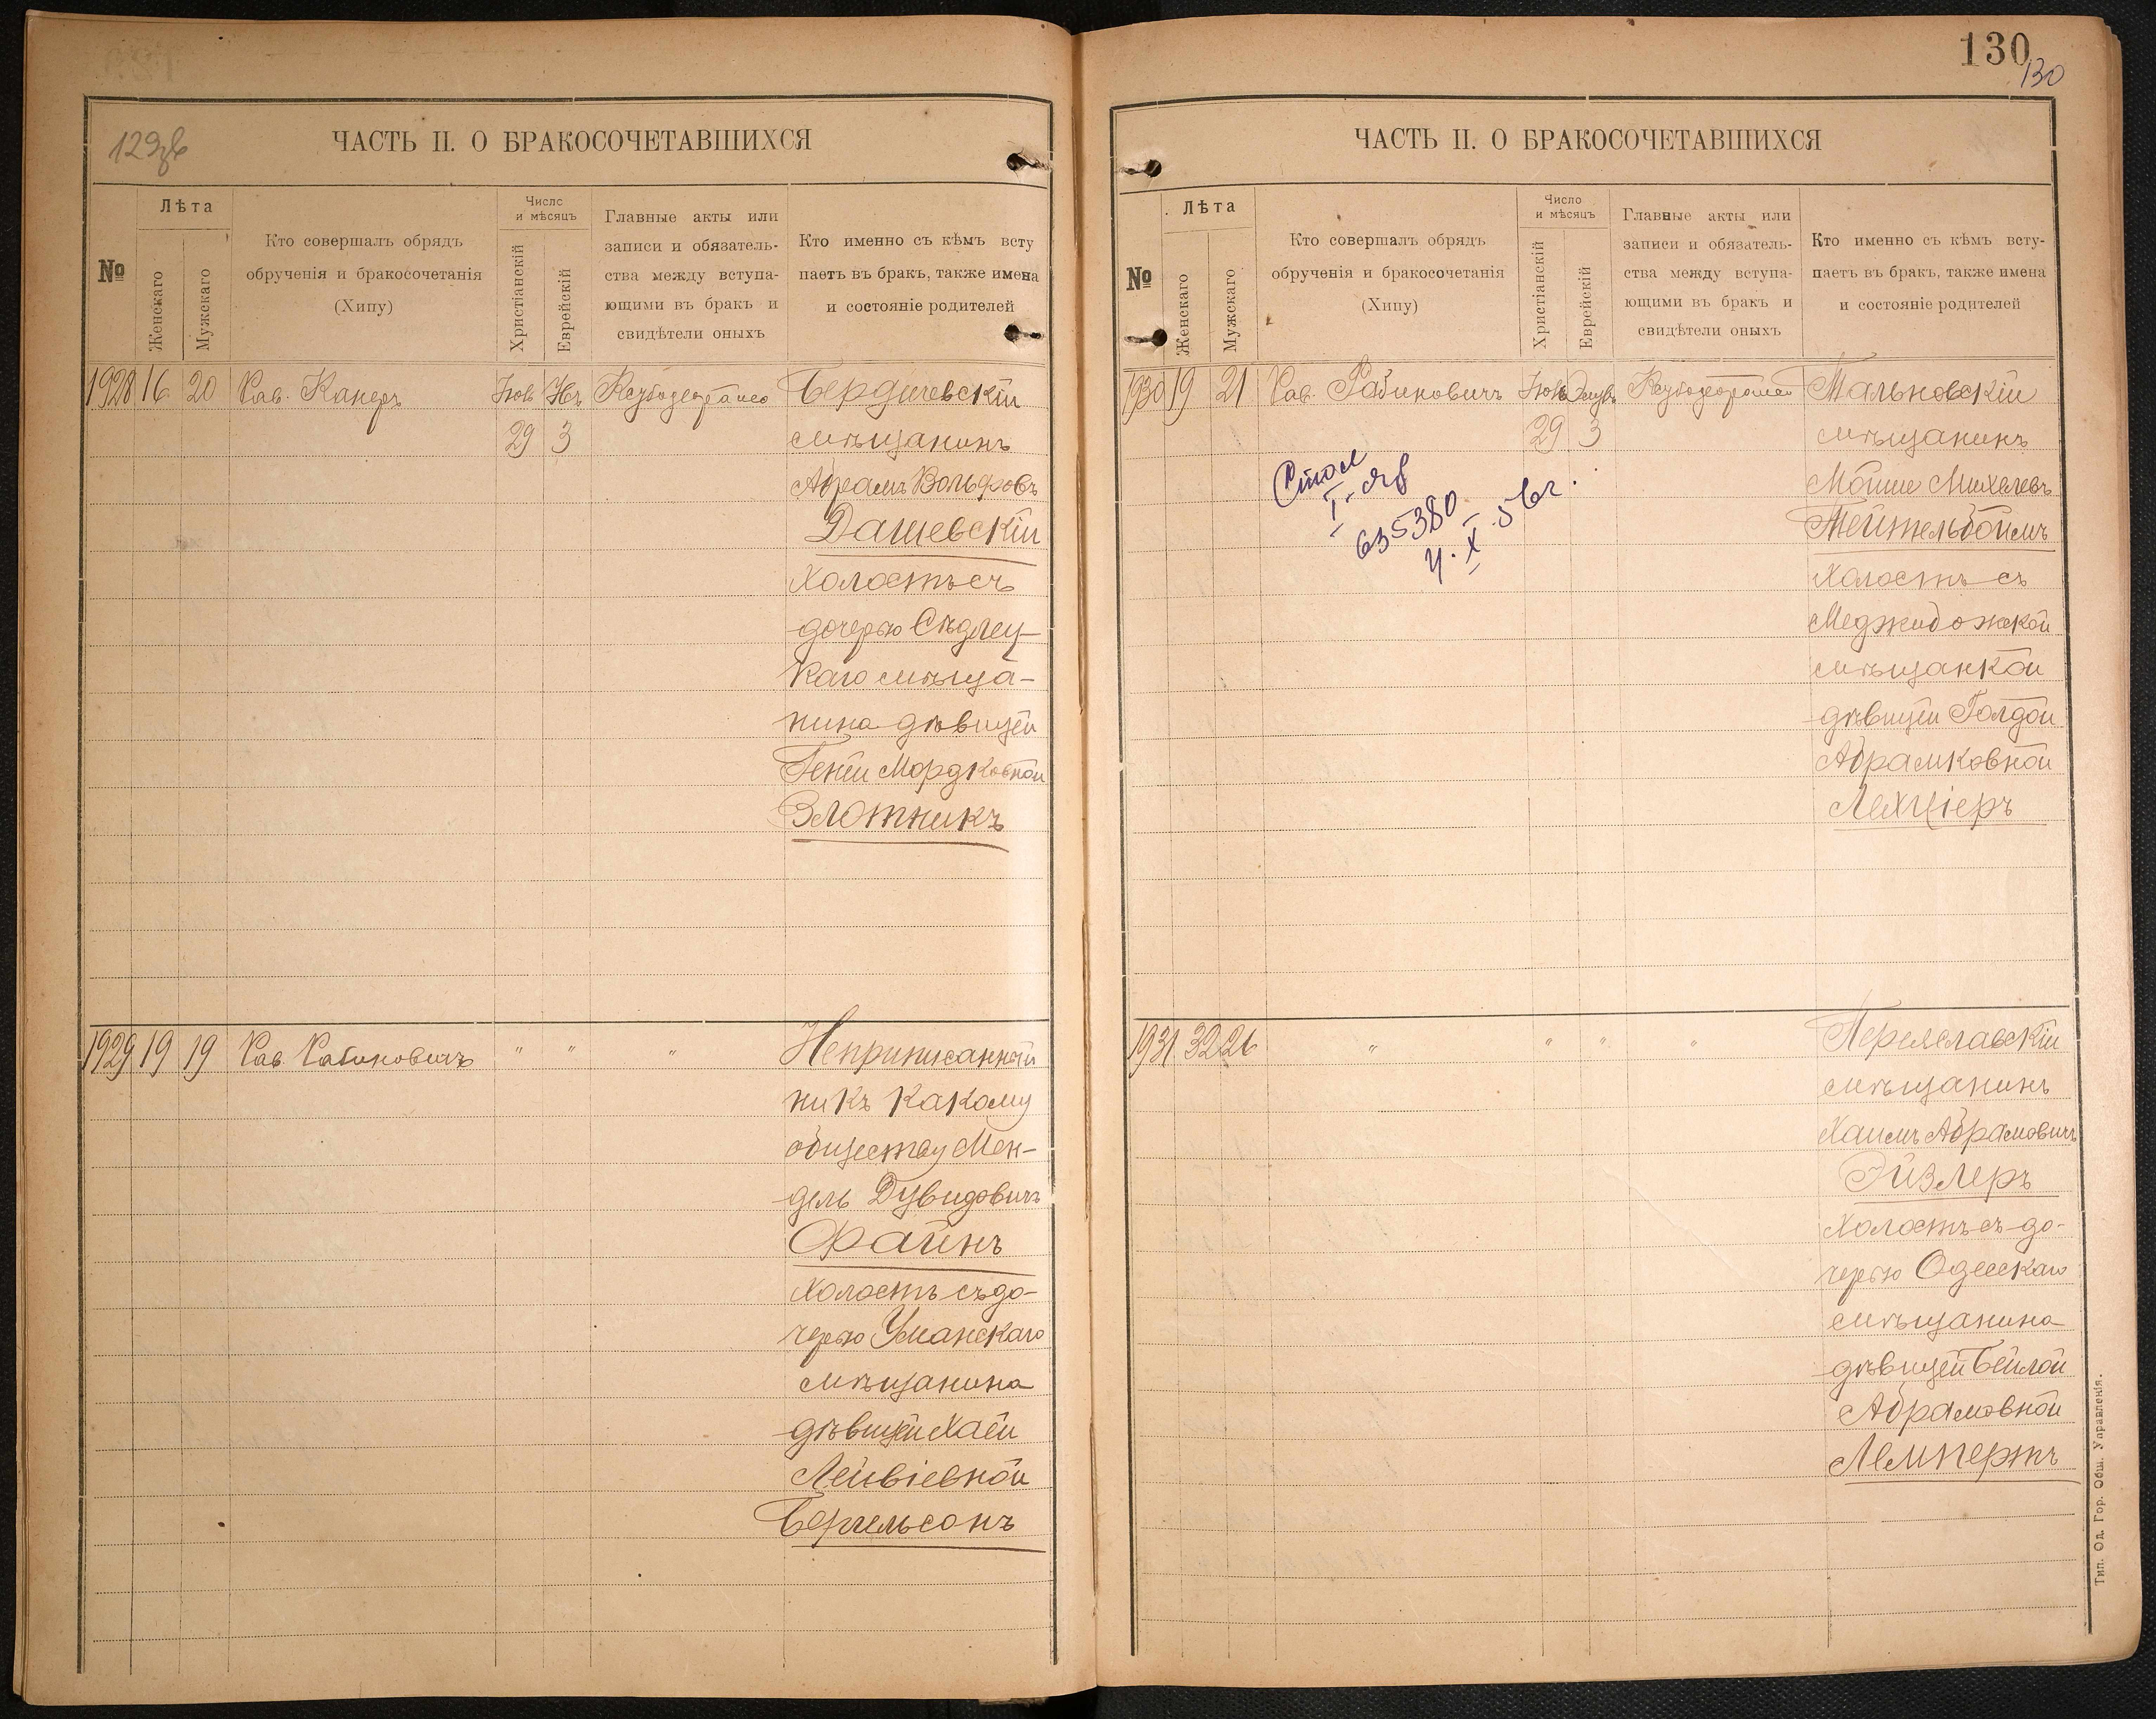 129зв
ЧАСТЬ II. О БРАКОСОЧЕТАВШИХСЯ
№
Лѣта
Женскаго
Мужскаго
Кто совершалъ обрядъ
обрученія и бракосочетанія
(Хипу)
Число
и мѣсяцъ
Христіанскій
Еврейскій
Главные акты или
записи и обязатель-
ства между вступа-
ющими въ бракъ и
свидѣтели оныхъ
Кто именно съ кѣмъ всту
паетъ въ бракъ, также имена
и состояніе родителей
1928 16 20 Рав. Канеръ
29 3
Бердичевскій
мѣщанинъ
Абрамъ Вольфовъ
Дашевскій
холостъ съ
дочерью Сѣдлец-
каго мѣща-
нина дѣвицей
Гений Мордковной
Злотникъ
1929 19 19 Рав. Рабиновичъ " " "
Неприписанный
ни къ какому
обществу Мен-
дель Дувидовичъ
Файнъ
холостъ съ до-
черью Уманскаго
мѣщанина
дѣвицей Хаей
Лейвіевной
Бергельсонъ
130
130
ЧАСТЬ II. О БРАКОСОЧЕТАВШИХСЯ
№
Лѣта
Женскаго
Мужскаго
Кто совершалъ обрядъ
обрученія и бракосочетанія
(Хипу)
Число
и мѣсяцъ
Христіанскій
Еврейскій
Главные акты или
записи и обязатель-
ства между вступа-
ющими въ бракъ и
свидѣтели оныхъ
Кто именно съ кѣмъ всту-
паетъ въ бракъ, также имена
и состояніе родителей
1930 19 21 Рав. Рабиновичъ
29 3
635380
Мальновскій
мѣщанинъ
Мойше Михелевъ
Тейтельбоймъ
холостъ съ
Меджибожской
мѣщанкой
дѣвицей Голдой
Абрамковной
Лехціеръ
1931 32 26 " " " "
Переяславскій
мѣщанинъ
Хаимъ Абрамовичъ
Эйзлеръ
холостъ съ до-
черью Одесскаго
мѣщанина
дѣвицей Бейлой
Абрамовной
Лемпертъ
Тип. Од. Гор. Общ. Управленія.